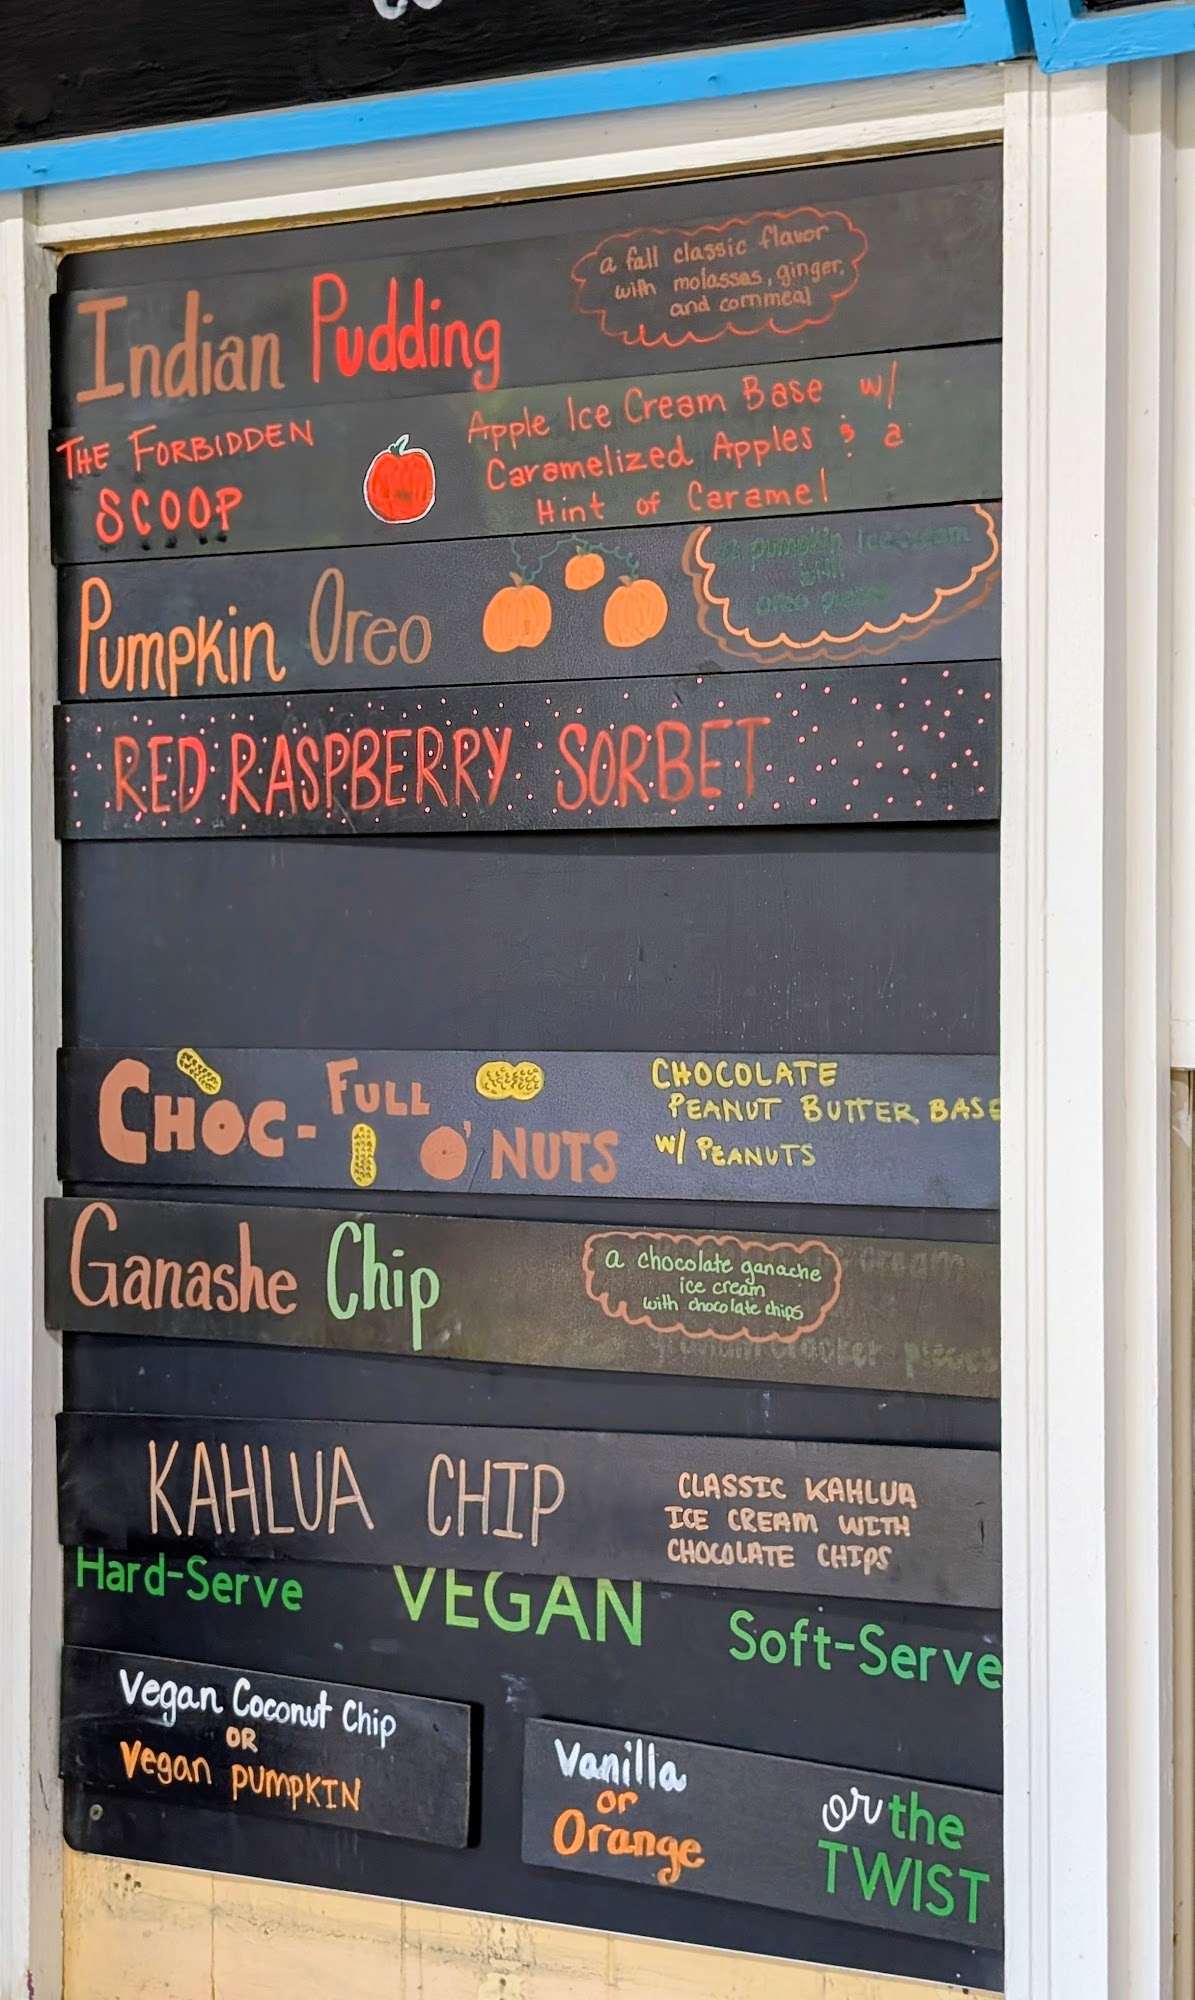 Indian Pudding
a fall classic flavor
with molasses, ginger,
and cornmeal
THE FORBIDDEN
SCOOP
Apple Ice Cream Base w/
Caramelized Apples & a
Hint of Caramel
Pumpkin Oreo
a pumpkin ice cream
with
oreo pieces
RED RASPBERRY SORBET
CHOC-FULL O' NUTS
CHOCOLATE
PEANUT BUTTER BASE
w/ PEANUTS
Ganashe Chip
a chocolate ganache
ice cream
with chocolate chips
cream
graham cracker pieces
KAHLUA CHIP
CLASSIC KAHLUA
ICE CREAM WITH
CHOCOLATE CHIPS
Hard-Serve VEGAN Soft-Serve
Vegan Coconut Chip
OR
Vegan PUMPKIN
Vanilla
or
Orange
or the
TWIST